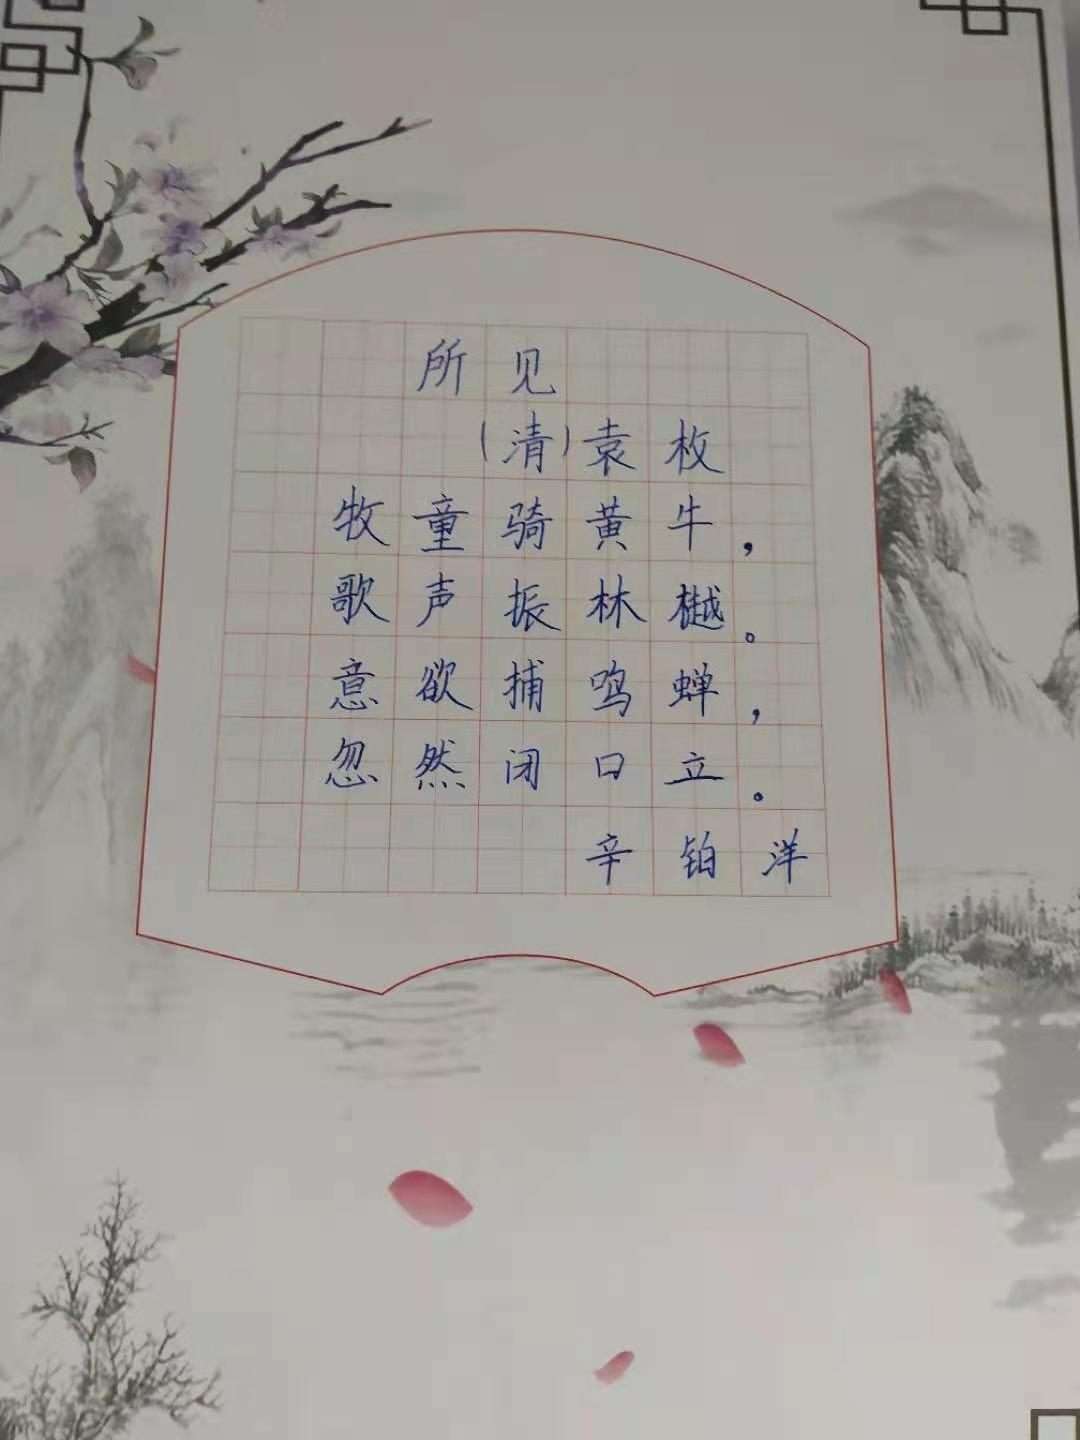 所见
(清)袁枚
牧童骑黄牛，
歌声振林樾。
意欲捕鸣蝉，
忽然闭口立。
辛铂洋